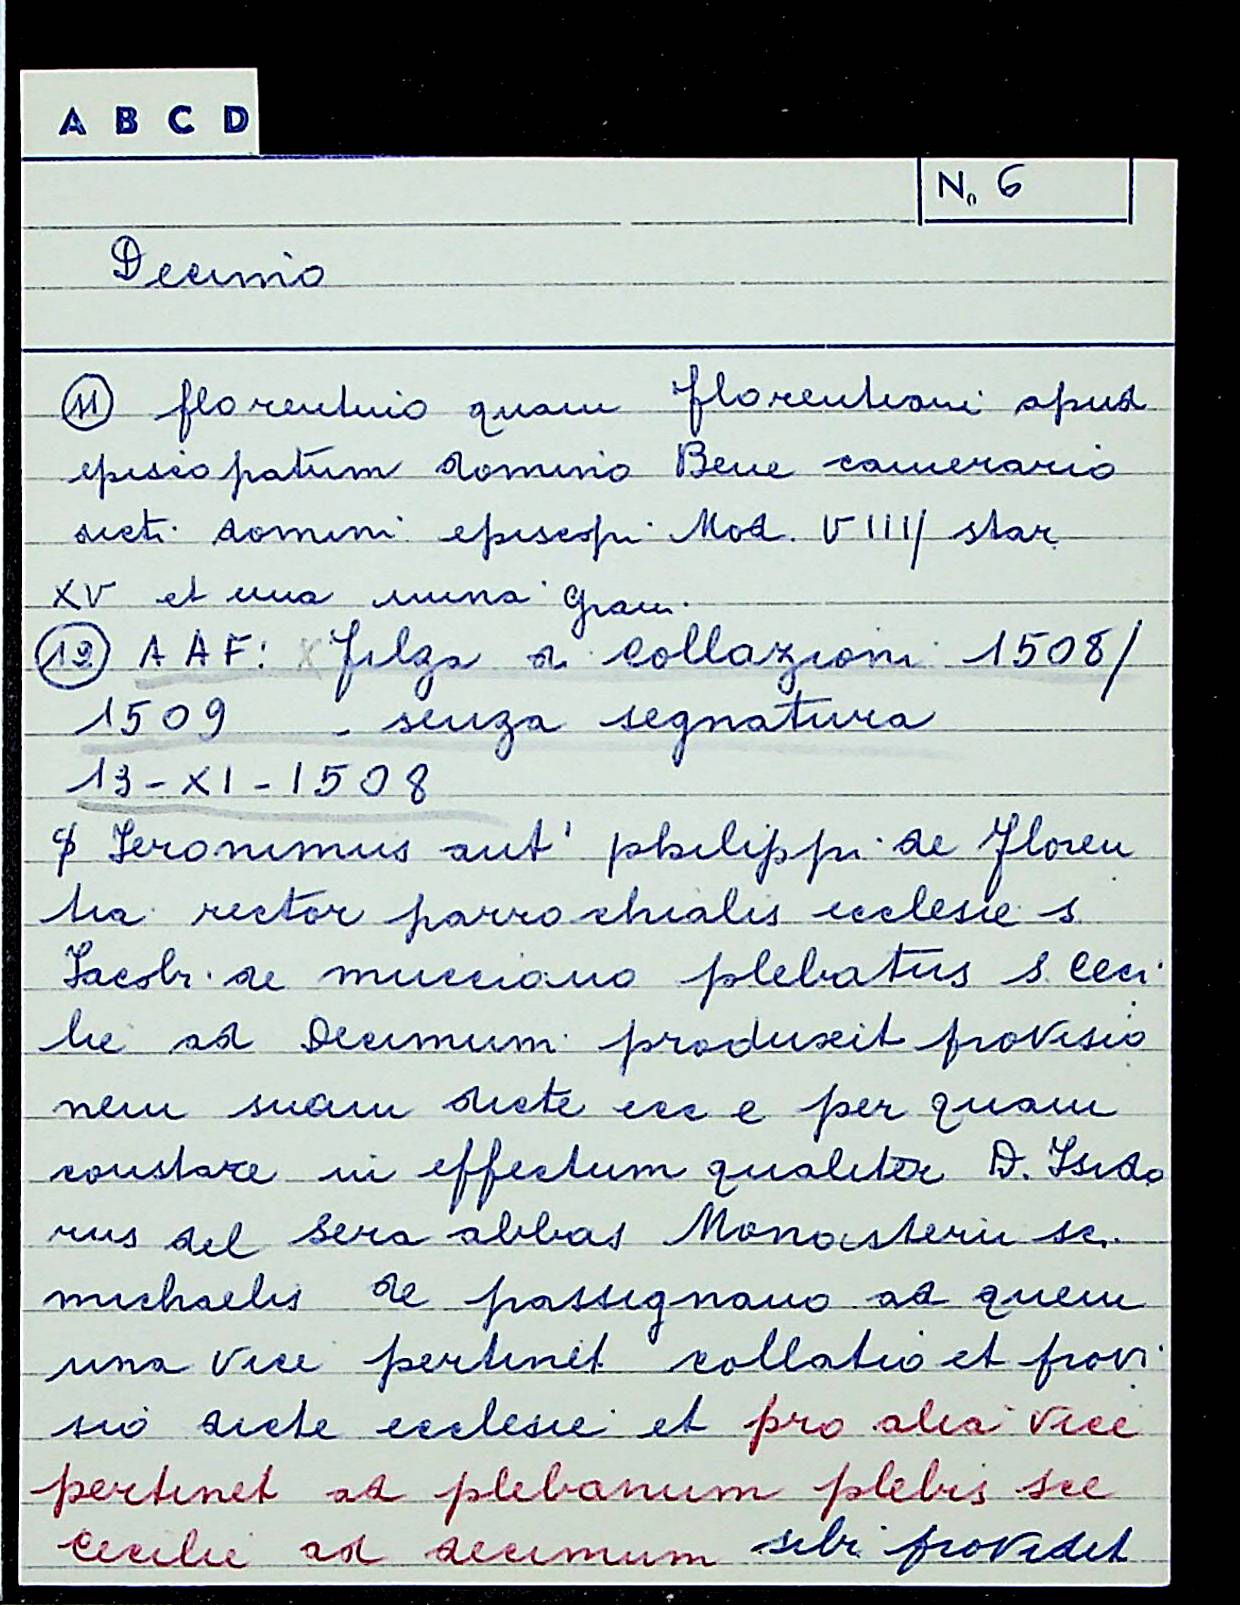 A B C D
No 6
Decimo
11 florentino quam florentiani apud
episcopatum domino Bene camerario
dicti domini episcopi Mod. VIII/ star
XV et una mina gran.
12 A A F: x filza di collazioni 1508/
1509 - senza segnatura
13-XI-1508
Jeronimus ant' philippi de Floren
tia rector parrochialis ecclesie s.
Jacobi de mucciano plebatus s. Ceci
lie ad Decimum produxit provisio
nem suam dicte ecc e per quam
constare in effectum qualiter D. Isido
rus del Sera abbas Monasterii sc.
michaelis de passignano ad quem
una vice pertinet collatio et provi
sio dicte ecclesie et pro alia vice
pertinet ad plebanum plebis sce
Cecilie ad decimum sibi providet